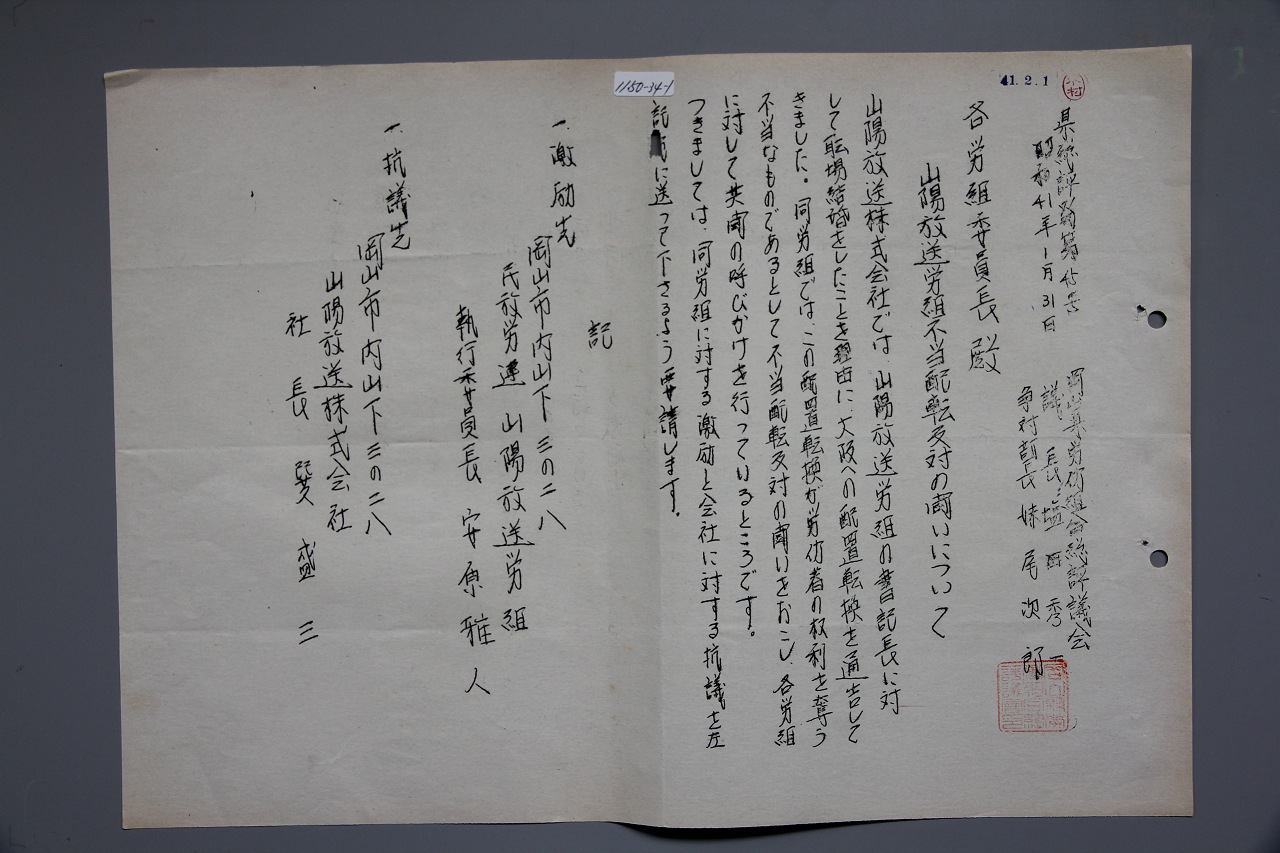 1150-34-1
41.2.1
県総評発第 号
昭和41年1月31日
岡山県労仂組合総評議会
議長 塩田秀一
争対部長 妹尾次郎
各労組委員長殿
山陽放送労組不当配転反対の闘いについて
山陽放送株式会社では、山陽放送労組の書記長に対
して職場結婚をしたことを理由に、大阪への配置転換を通告して
きました。同労組では、この配置転換が労仂者の权利を奪う
不当なものであるとして不当配転反対の闘いをおこし、各労組
に対して共闘の呼びかけを行っているところです。
つきましては、同労組に対する激励と会社に対する抗議を左
記に送って下さるよう要請します。
記
一、激励先
岡山市内山下三の二八
民放労連 山陽放送労組
執行委員長 安原雅人
一、抗議先
岡山市内山下三の二八
山陽放送株式会社
社長 巽盛三